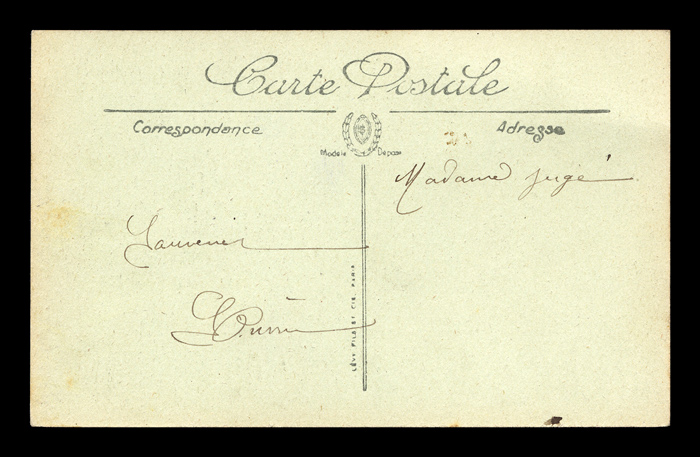 Carte Postale
Correspondance
Adresse
Modèle Déposé
Madame Jugé
Souvenir
LÉVY FILS ET CIE, PARIS